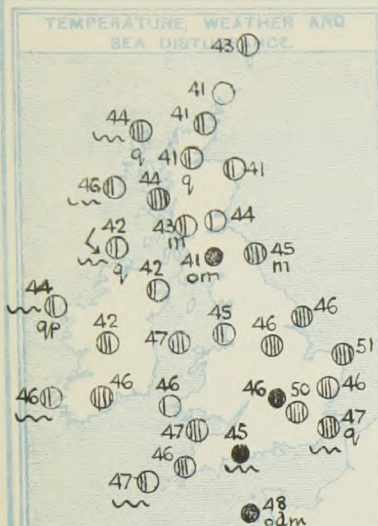 TEMPERATURE, WEATHER AND
SEA DISTURBANCE.
43
41
41
44
q
41
q
41
46
44
42
q
43
m
44
41
om
45
m
42
44
qp
46
42
47
45
46
51
46
46
46
46
50
46
47
q
47
45
46
47
48
odm